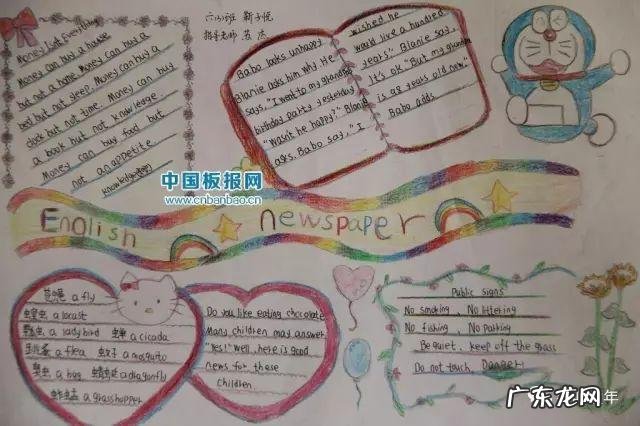 Money Isn't Everything
Money can buy a house
but not a home. Money can buy a
bed but not sleep. Money can buy a
clock but not time. Money can buy
a book but not knowledge.
Money can buy food but
not an appetite.
knowledge
六(3)班
指导老师
Babo looks unhappy
Blanie asks him why. He
says, "I went to my grandma
birthday party yesterday
"Wasn't he happy?" Blanie
asks. Babo say, "I
wished he
would live a hundred
years" Blanie say,
It's ok "But my grandma
is 98 years old now."
Babo adds
中国板报网
www.cnbanbao.cn
English newspaper
苍蝇 a fly
蝗虫 a locast
瓢虫 a ladybird 蝉 a cicada
跳蚤 a flea 蚊子 a mosquito
臭虫 a bug 蜻蜓 a dragonfly
蚱蜢 a grasshopper
Do you like eating chocolate
Many children may answer
"Yes!" Well, here is good
news for these
children.
Public signs
No smoking, No littering
No fishing, No parking
Be quiet, keep off the grass
Do not touch, Danger!
广东龙网
年